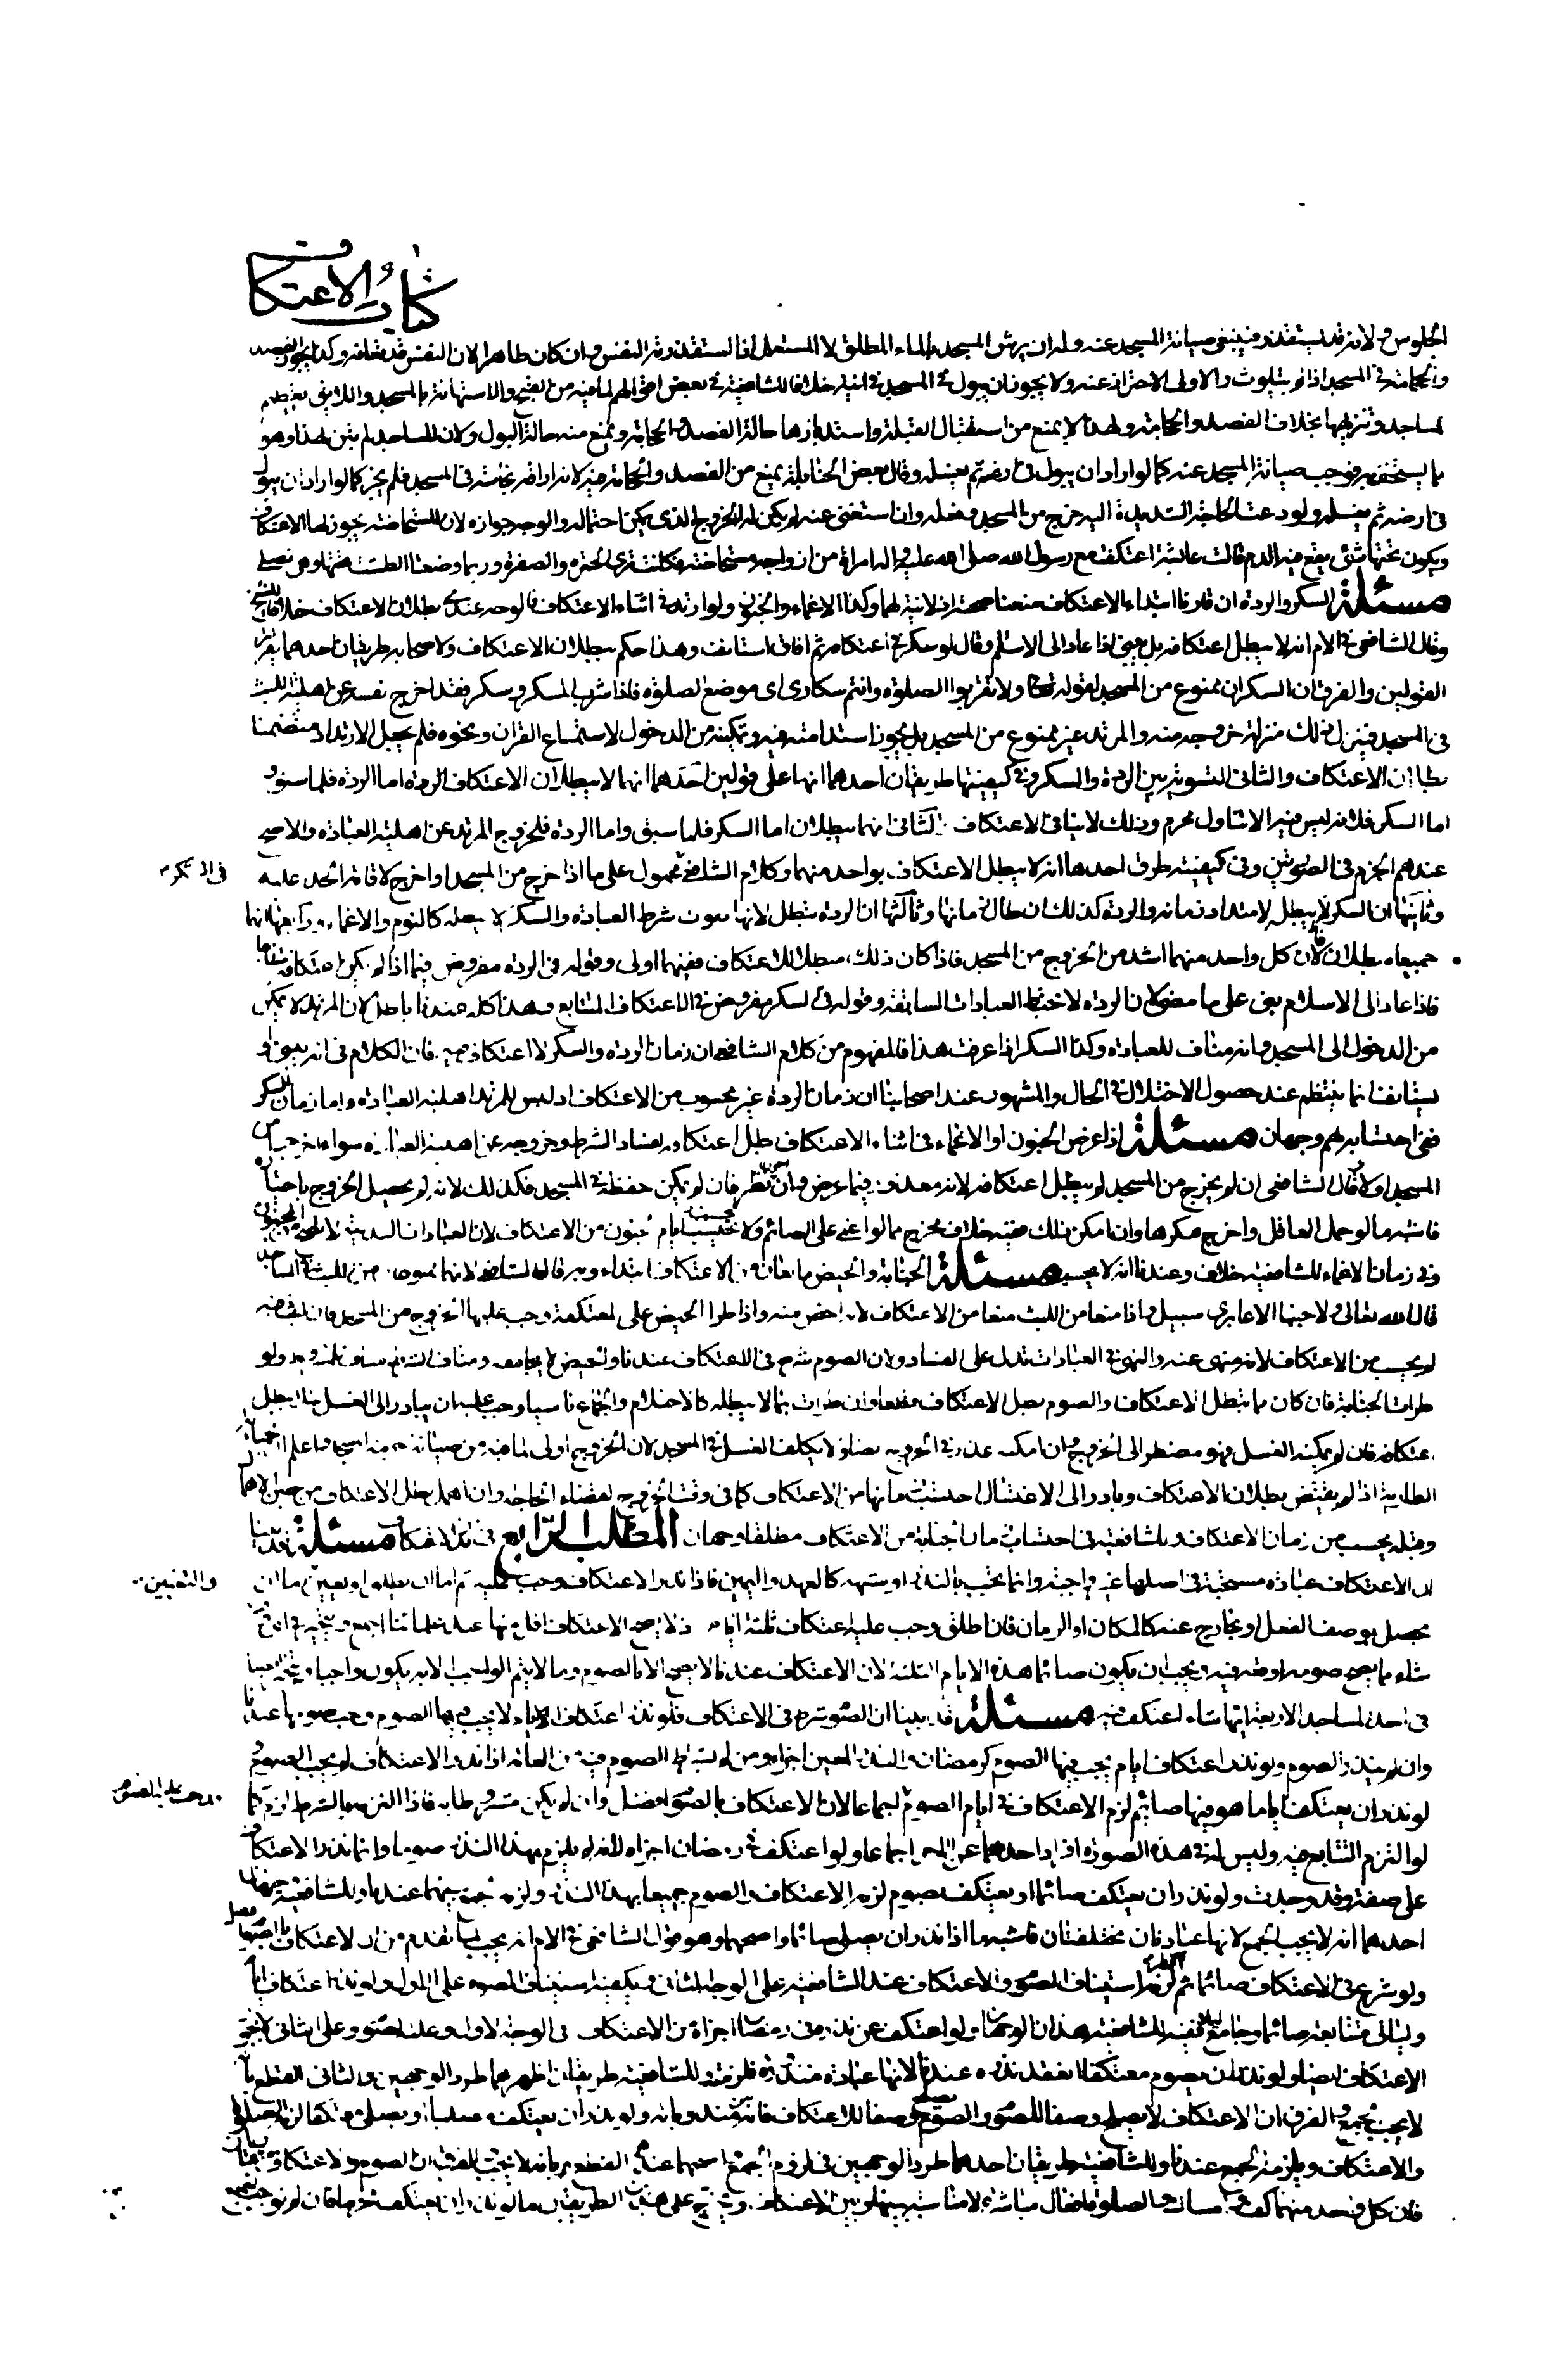 كتاب الاعتكاف
الجلوس فيه ولانه قد يستقذر فينبغي صيانة المسجد عنه وله ان يرش المسجد بالماء المطلق لا المستعمل اذا استقذرته النفس وان كان طاهرا لان النفس قد تعافه وكذا يجوز الفصد
والحجامة في المسجد اذا لم يتلوث والاولى الاحتراز عنه ولا يجوز ان يبول في المسجد في انية خلافا للشافعية في بعض اقوالهم لما فيه من القبح والاستهانة بالمسجد واللايق تعظيم
المساجد وتنزيهها بخلاف الفصد والحجامة ولهذا لا يمنع من استقبال القبلة واستدبارها حالة الفصد والحجامة ويمنع منه حالة البول ولان المساجد لم تبن لهذا وهو
مما يستخفى به فوجب صيانة المسجد عنه كما لو اراد ان يبول في ارضه ثم يغسله وقال بعض الحنابلة يمنع من الفصد والحجامة فيه لانه اراقة نجاسة في المسجد فلم يجز كما لو اراد ان يبول
في ارضه ثم يغسله ولو دعت الحاجة الشديدة اليه خرج من المسجد وفعله وان استغنى عنه لم يكن له الخروج الذي يمكن احتماله والوجه جوازه لان المستحاضة يجوز لها الاعتكاف
ويكون تحتها شئ يقع فيه الدم قالت عايشة اعتكفت مع رسول الله صلى الله عليه واله امراة من ازواجه مستحاضة فكانت ترى الحمرة والصفرة وربما وضعنا الطست تحتها وهي تصلي
مسئلة السكر والردة ان قارنا ابتداء الاعتكاف منعنا صحته اذ لا نية لهما وكذا الاغماء والجنون ولو ارتد في اثناء الاعتكاف فالوجه عندي بطلان الاعتكاف خلافا للشيخ
وقال الشافعي في الام انه لا يبطل اعتكافه بل يبنى اذا عاد الى الاسلام وقال لو سكر في اعتكافه ثم افاق استانف وهذا حكم ببطلان الاعتكاف ولاصحابه طريقان احدهما تقرير
القولين والفرق ان السكران ممنوع من المسجد لقوله تعالى ولا تقربوا الصلوة وانتم سكارى اي موضع الصلوة فاذا شرب المسكر وسكر فقد اخرج نفسه عن اهلية اللبث
في المسجد فينزل ذلك منزلة خروجه منه والمرتد غير ممنوع من المسجد بل يجوز استدامته فيه وتمكينه من الدخول لاستماع القران ونحوه فلم يجعل الارتداد متضمنا
بطلان الاعتكاف والثاني التسوية بين الردة والسكر وفي كيفيتها طريقان احدهما انها على قولين احدهما انهما لا يبطلان الاعتكاف اما الردة فلما سبق و
اما السكر فلانه ليس فيه الا تناول محرم وذلك لا ينافي الاعتكاف الثاني انهما يبطلان اما السكر فلما سبق واما الردة فلخروج المرتد عن اهلية العبادة والاصح
عندهم الجزم في الصورتين وفي كيفيته طرق احدها انه لا يبطل الاعتكاف بواحد منهما وكلام الشافعي محمول على ما اذا خرج من المسجد او اخرج لاقامة الحد عليه
وثانيها ان السكر يبطله لامتداد زمانه والردة كذلك ان طال زمانها وثالثها ان الردة تبطل لانها تفوت شرط العبادة والسكر لا يبطله كالنوم والاغماء ورابعها انهما
جميعا يبطلان لان كل واحد منهما اشد من الخروج من المسجد فاذا كان ذلك مبطلا للاعتكاف ففيهما اولى وقوله في الردة مفروض فيما اذا لم يكن اعتكافه متتابعا
فاذا عاد الى الاسلام بنى على ما مضى لان الردة لا تحبط العبادات السابقة وقوله في السكر مفروض في الاعتكاف المتتابع وهذا كله عندنا باطل لان المرتد لا يمكن
من الدخول الى المسجد وانه مناف للعبادة وكذا السكر اذا عرفت هذا فالمفهوم من كلام الشافعي ان زمان الردة والسكر لا اعتكاف فيه فان الكلام في انه يبني او
يستانف انما ينتظم عند حصول الاختلال في الحال والمشهور عند اصحابنا ان زمان الردة غير محسوب من الاعتكاف اذ ليس للمرتد اهلية العبادة واما زمان السكر
ففي احتسابه لهم وجهان مسئلة اذا عرض الجنون او الاغماء في اثناء الاعتكاف بطل اعتكافه لفساد الشرط وخروجه عن اهلية العبادة سواء اخرج من
المسجد او لا وقال الشافعي ان لم يخرج من المسجد لم يبطل اعتكافه لانه معذور فيما عرض وان نظر فان لم يمكن حفظه في المسجد فكذلك لانه لم يحصل الخروج باختياره
فاشبه ما لو حمل العاقل واخرج مكرها وان امكن ذلك ففيه خلاف مخرج مما لو اغمي على الصائم ولا يحتسب ايام الجنون من الاعتكاف لان العبادات البدنية لا تصح من المجنون
وفي زمان الاغماء للشافعية خلاف وعندنا انه لا يحسب مسئلة الجنابة والحيض مانعان من الاعتكاف ابتداء وبه قال الشافعي لانهما ممنوعان من اللبث في المساجد
قال الله تعالى ولا جنبا الا عابري سبيل واذا منعا من اللبث منعا من الاعتكاف لانه اخص منه واذا طرا الحيض على المعتكفة وجب عليها الخروج من المسجد فان لبثت فيه
لم يحسب من الاعتكاف لانه منهي عنه والنهي في العبادات تدل على الفساد ولان الصوم شرط في الاعتكاف عندنا والحيض لا يجامعه
طرات الجنابة فان كان مما تبطل الاعتكاف والصوم بطل الاعتكاف مطلقا وان طرات بما لا يبطله كالاحتلام والجماع ناسيا وجب عليه ان يبادر الى الغسل لئلا يبطل
اعتكافه فان لم يمكنه الغسل فهو مضطر الى الخروج وان امكنه عذر في الخروج ايضا ولا يكلف الغسل في المسجد لان الخروج اولى لما فيه من صيانة حرمة المسجد واعلم ان
الطارية اذا لم يقتض بطلان الاعتكاف وبادر الى الاغتسال احتسب زمانها من الاعتكاف كما في وقت الخروج لقضاء الحاجة وان اهمل بطل الاعتكاف من حين الاهمال
وقبله يحسب من زمان الاعتكاف وللشافعية في احتساب زمان الجنابة من الاعتكاف مطلقا وجهان المطلب الرابع في نذر الاعتكاف مسئلة قد بينا
ان الاعتكاف عبادة مستحبة في اصلها غير واجبة وانما تجب بالنذر او شبهه كالعهد واليمين فاذا نذر الاعتكاف وجب عليه ثم اما ان يطلق او يعين
يحصل بوصف الفعل او بخارج عنه كالمكان او الزمان فان اطلق وجب عليه اعتكاف ثلثة ايام اذ لا يصح الاعتكاف اقل منها عند علمائنا اجمع ويتخير في اي وقت
شاء مما يصح صومه اوقعه فيه ويجب ان يكون صائما هذه الايام الثلثة لان الاعتكاف عندنا لا يصح الا بالصوم وما لا يتم الواجب الا به يكون واجبا ويتخير ايضا
في احد المساجد الاربعة ايها شاء اعتكف فيه مسئلة قد بينا ان الصوم شرط في الاعتكاف فلو نذر اعتكاف ايام لا يجب فيها الصوم وجب صومها عندنا
وان لم ينذر الصوم ولو نذر اعتكاف ايام يجب فيها الصوم كرمضان والنذر المعين اجزاه ومن لم يشترط الصوم فيه من العامة اذا نذر الاعتكاف لم يجب الصوم
لو نذر ان يعتكف اياما هو فيها صائم لزم الاعتكاف في ايام الصوم اجماعا لان الاعتكاف بالصوم افضل وان لم يكن مشروطا به فاذا التزم بالشرط لزم كما
لو التزم التتابع فيه وليس له في هذه الصورة افراد احدهما عن الاخر اجماعا ولو اعتكف في رمضان اجزاه لانه لم يلتزم بهذا النذر صوما وانما نذر الاعتكاف
على صفة وقد وجدت ولو نذر ان يعتكف صائما او يعتكف بصوم لزمه الاعتكاف والصوم جميعا بهذا النذر ولزمه الجمع بينهما عندنا وللشافعية وجهان
احدهما انه لا يجب الجمع لانهما عبادتان مختلفتان فاشبه ما اذا نذر ان يصلي صائما واصحهما وهو قول الشافعي في الام انه يجب لما تقدم من ان الاعتكاف
ولو شرع في الاعتكاف صائما ثم افطر لزمه استيناف الصوم والاعتكاف عند الشافعية على الوجه الثاني ويكفيه استيناف الصوم على الاول ولو نذر اعتكاف ايام
وليالي متتابعة صائما وجامع ليلا ففيه للشافعية هذان الوجهان ولو اعتكف عن نذره في رمضان اجزاه من الاعتكاف في الوجه الاول وعليه الصوم وعلى الثاني لا يجزيه
الاعتكاف ايضا ولو نذر ان يصوم معتكفا انعقد نذره عندنا لانها عبادة منذورة فلزمته وللشافعية طريقان اظهرهما طرد الوجهين والثاني القطع بانه
لا يجب الجمع والفرق ان الاعتكاف لا يصلح وصفا للصوم والصوم يصلح وصفا للاعتكاف فانه مندوباته ولو نذر ان يعتكف مصليا او يصلي معتكفا لزمه الصلوة
والاعتكاف ويلزمه الجمع عندنا وللشافعية طريقان احدهما طرد الوجهين في لزوم الجمع اصحهما عندهم القطع بانه لا يجب الفرق ان الصوم والاعتكاف متقاربان
فان كل واحد منهما كف وامساك والصلوة افعال مباشرة لا مناسبة بينها وبين الاعتكاف ويخرج على هذين الطريقين ما لو نذر ان يعتكف محرما فان لم يوجب الجمع
والتعيين